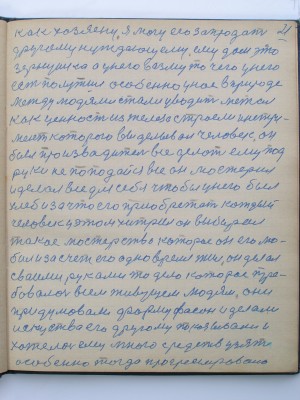 21
как хозяину, я могу его запродать
другому нуждающему, ему дам это
зернышка а у него возму то чего у него
есть помутил особенно у нас в природе
между людями стали уводить метал
как ценность из железа строем инстру-
мент которого выделывал человек, он
был производител все делот ему под
руки не поподайся все он мостерил
и делал все для себя чтобы у него был
хлеб и за что его приобретат каждый
человек у этом хитрил он выбирал
такое мостерство которое он его лю-
бил и за счет его одно время жил, он делал
своими руками то дело которое тре-
бовалося всем живущем людям, они
придумовали форму фасон и делали
искуства его другому показывали и
хотели ему много средств узяти
особенно тогда прогресировало